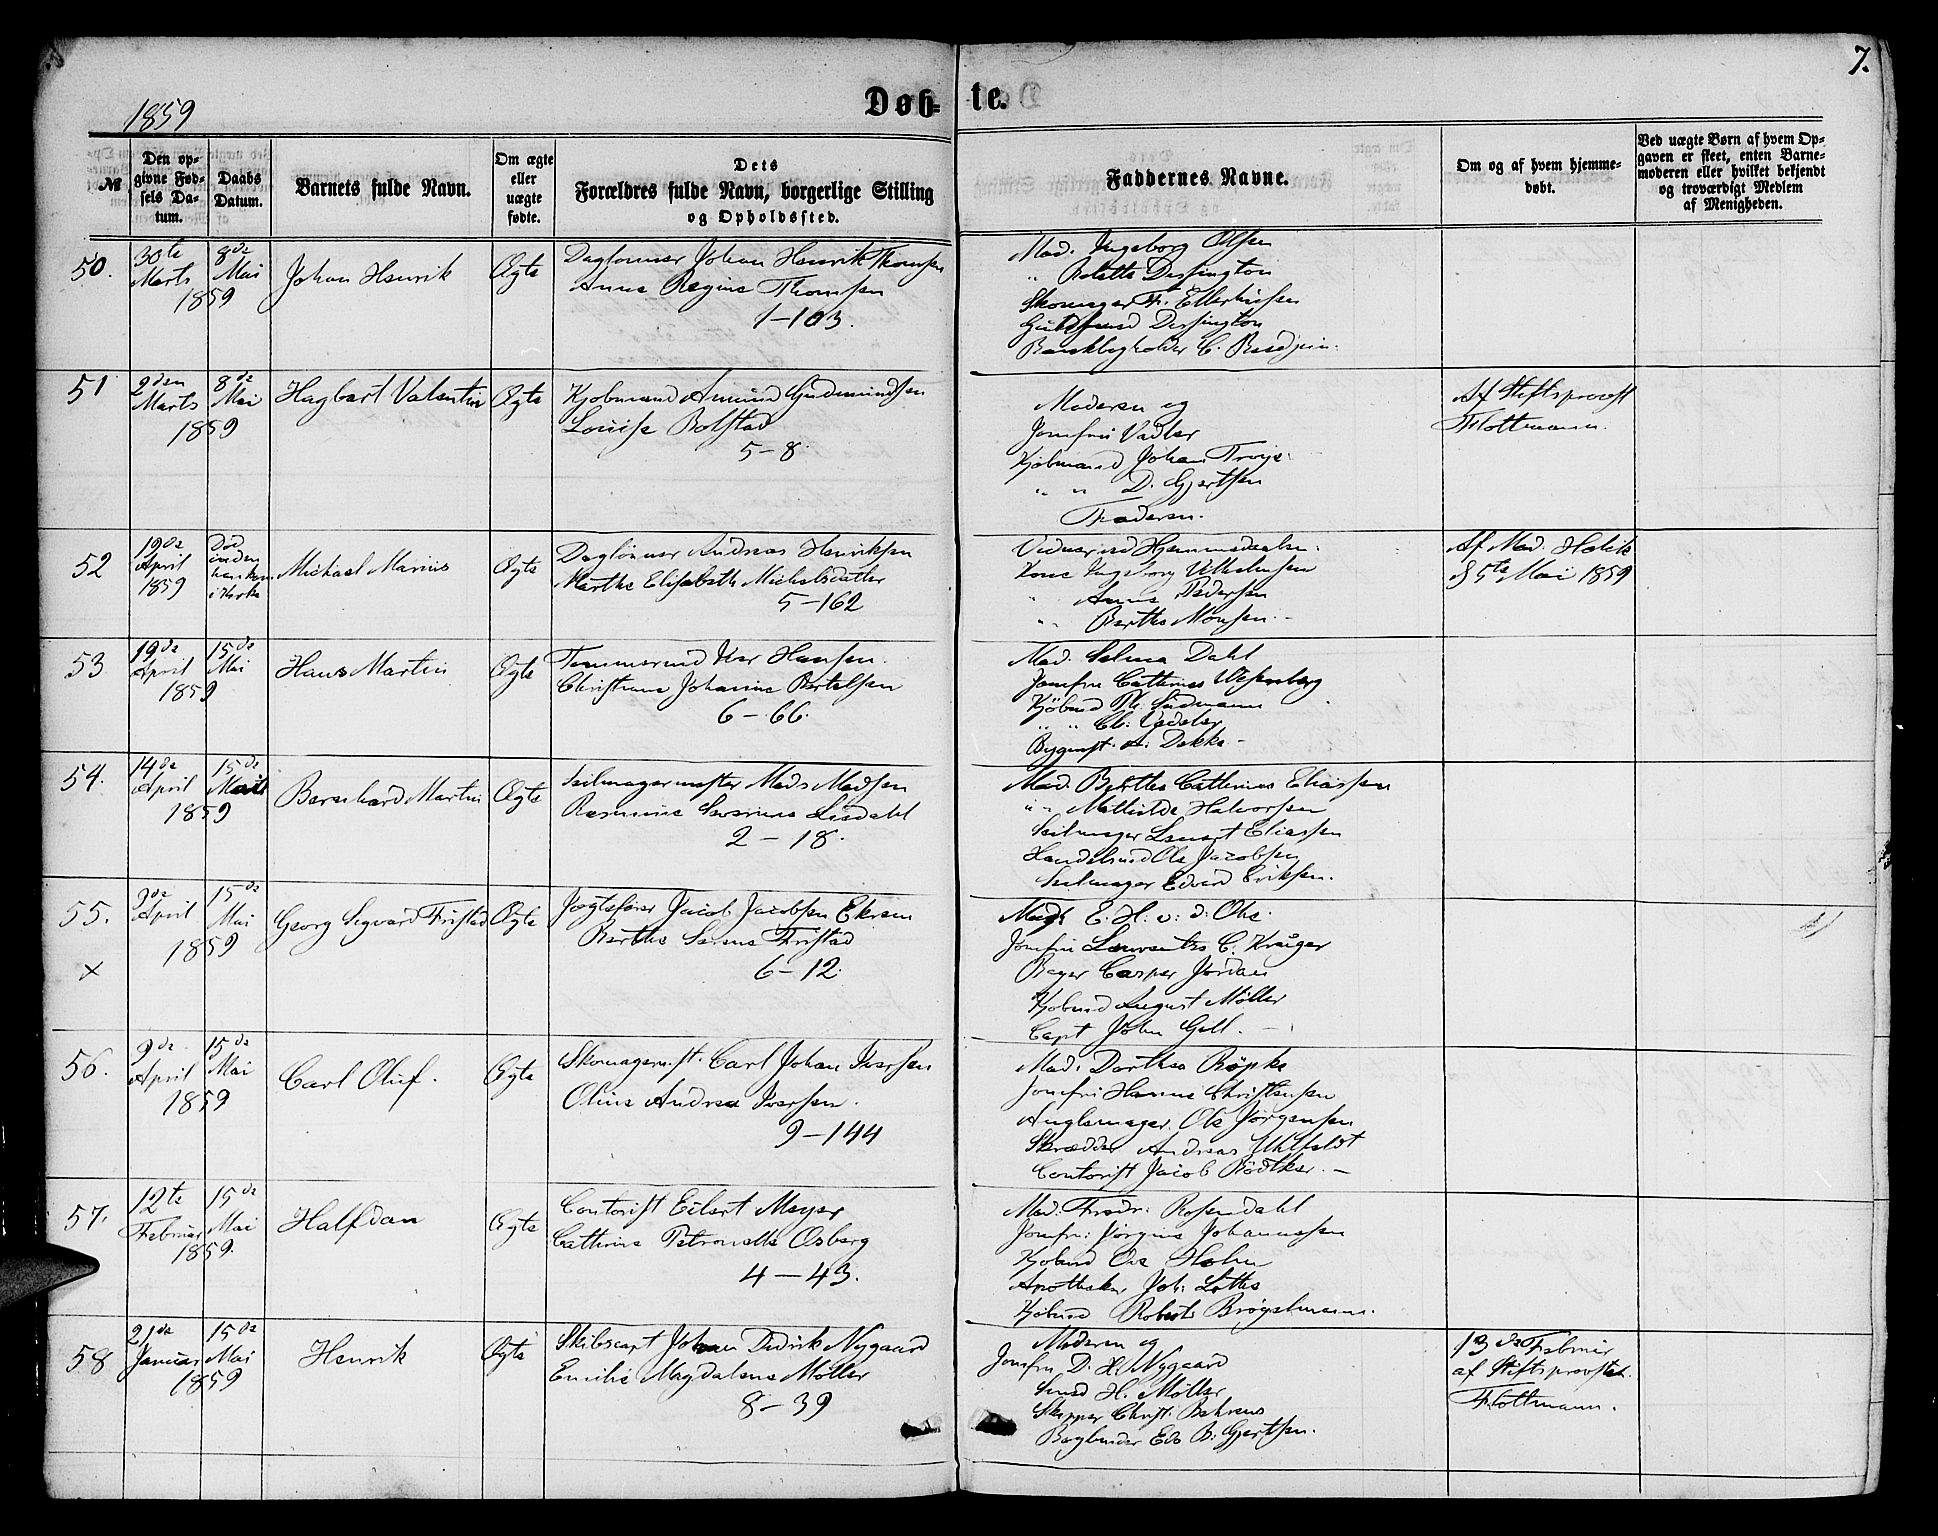 1859
Døb-te.
7.
№
Den opgivne Fødsels Datum.
Daabs Datum.
Barnets fulde Navn.
Om ægte eller uægte fødte.
Dets Forældres fulde Navn, borgerlige Stilling og Opholdssted.
Faddernes Navne.
Om og af hvem hjemmedøbt.
Ved uægte Børn af hvem Opgaven er skeet, enten Barnemoderen eller hvilket bekjendt og troværdigt Medlem af Menigheden.
50.
30te Marts 1859
8de Mai
Johan Henrik
Ægte
Daglønner Johan Henrik Thomsen
Anne Regine Thomsen
1-103.
Mad. Ingeborg Olsen
" Bolette Dessington
Skomager Fr. Ellerhusen
Dessington
51
2den Marts 1859
8de Mai
Hagbart Valentin
Ægte
Kjøbmand Amund Gudmundsen
Louise Bolstad
5-8.
Moderen og
Jomfru Vedeler
Kjøbmand Johan Troye
" " D. Gjertsen
Faderen.
Af Stiftsprovst
Flottmann.
52
19de April 1859
Død inden han kom i Kirke
Michael Marius
Ægte
Daglønner Andreas Henriksen
Marthe Elisabeth Michelsdatter
5-162
Vidner ved Hjemmedaaben:
Kone Ingeborg Vilhelmsen
" Anna Pedersen
" Berthe Monsen.-
Af Mad.
d 5te Mai 1859
53
19de April 1859
15de Mai
Hans Martin
Ægte
Tømmermd Iver Hansen.
Christiane Johanne Bertelsen
6-66.
Mad. Selma Dahl
Jomfru Cathrine Wesenberg
Kjøbmd Th. Sudmann
" " Cl. Vedeler
Bygmst. A. Dekke-
54.
14de April 1859
15de Mai
Bernhard Martin
Ægte
Seilmagermester Mads Madsen
Rasmine Severine Lisdahl
2-18.
Mad. Berthe Cathrine Eliassen
" " Mathilde Halvorsen
Seilmager Lenert Eliassen
Handelsmd Ole Jacobsen
Seilmager Edvard Eriksen.
55.
x
3de April 1859
15de Mai
Georg Sigvard Fristad
Ægte
Jagtefører Jacob Jacobsen Ekren
Berthe Serine Fristad
6-12.
Mad. E. H. v. d. Ohe.
Jomfru Laurentze C. Krüger
Bager Casper Jordan
Kjøbmd August Møller
Capt John Gell. -
56.
9de April 1859
15de Mai
Carl Oluf.
Ægte
Skomagermst. Carl Johan Iversen
Oline Andrea Iversen.
9-144
Mad. Dorthea Röpke
Jomfru Hanne Christensen
Anglemager Ole Jørgensen
Skrædder Andreas Uhlfeldt
Contorist Jacob Rödtker.-
57.
12te Februar 1859.
15de Mai
Halfdan
Ægte
Contorist Eilert Meyer
Cathrine Petronelle Osberg
4-43.
Mad. Fredr. Rosendahl
Jomfru Jørgine Johannessen
Kjøbmd Ole Holm
Apotheker Joh. Lothe
Kjøbmd Robert Brøgelmann.
58
21de Januar 1859
15de Mai
Henrik
Ægte
Skibscapt Johan Didrik Nygaard
Emilie Magdalene Møller
8-39
Moderen og
Jomfru D. H. Nygaard
Smed H. Møller
Skipper Christ. Behrens
Bogbinder Edv B. Gjertsen.
13de Februar
af Stiftsprovsten
Flottmann.